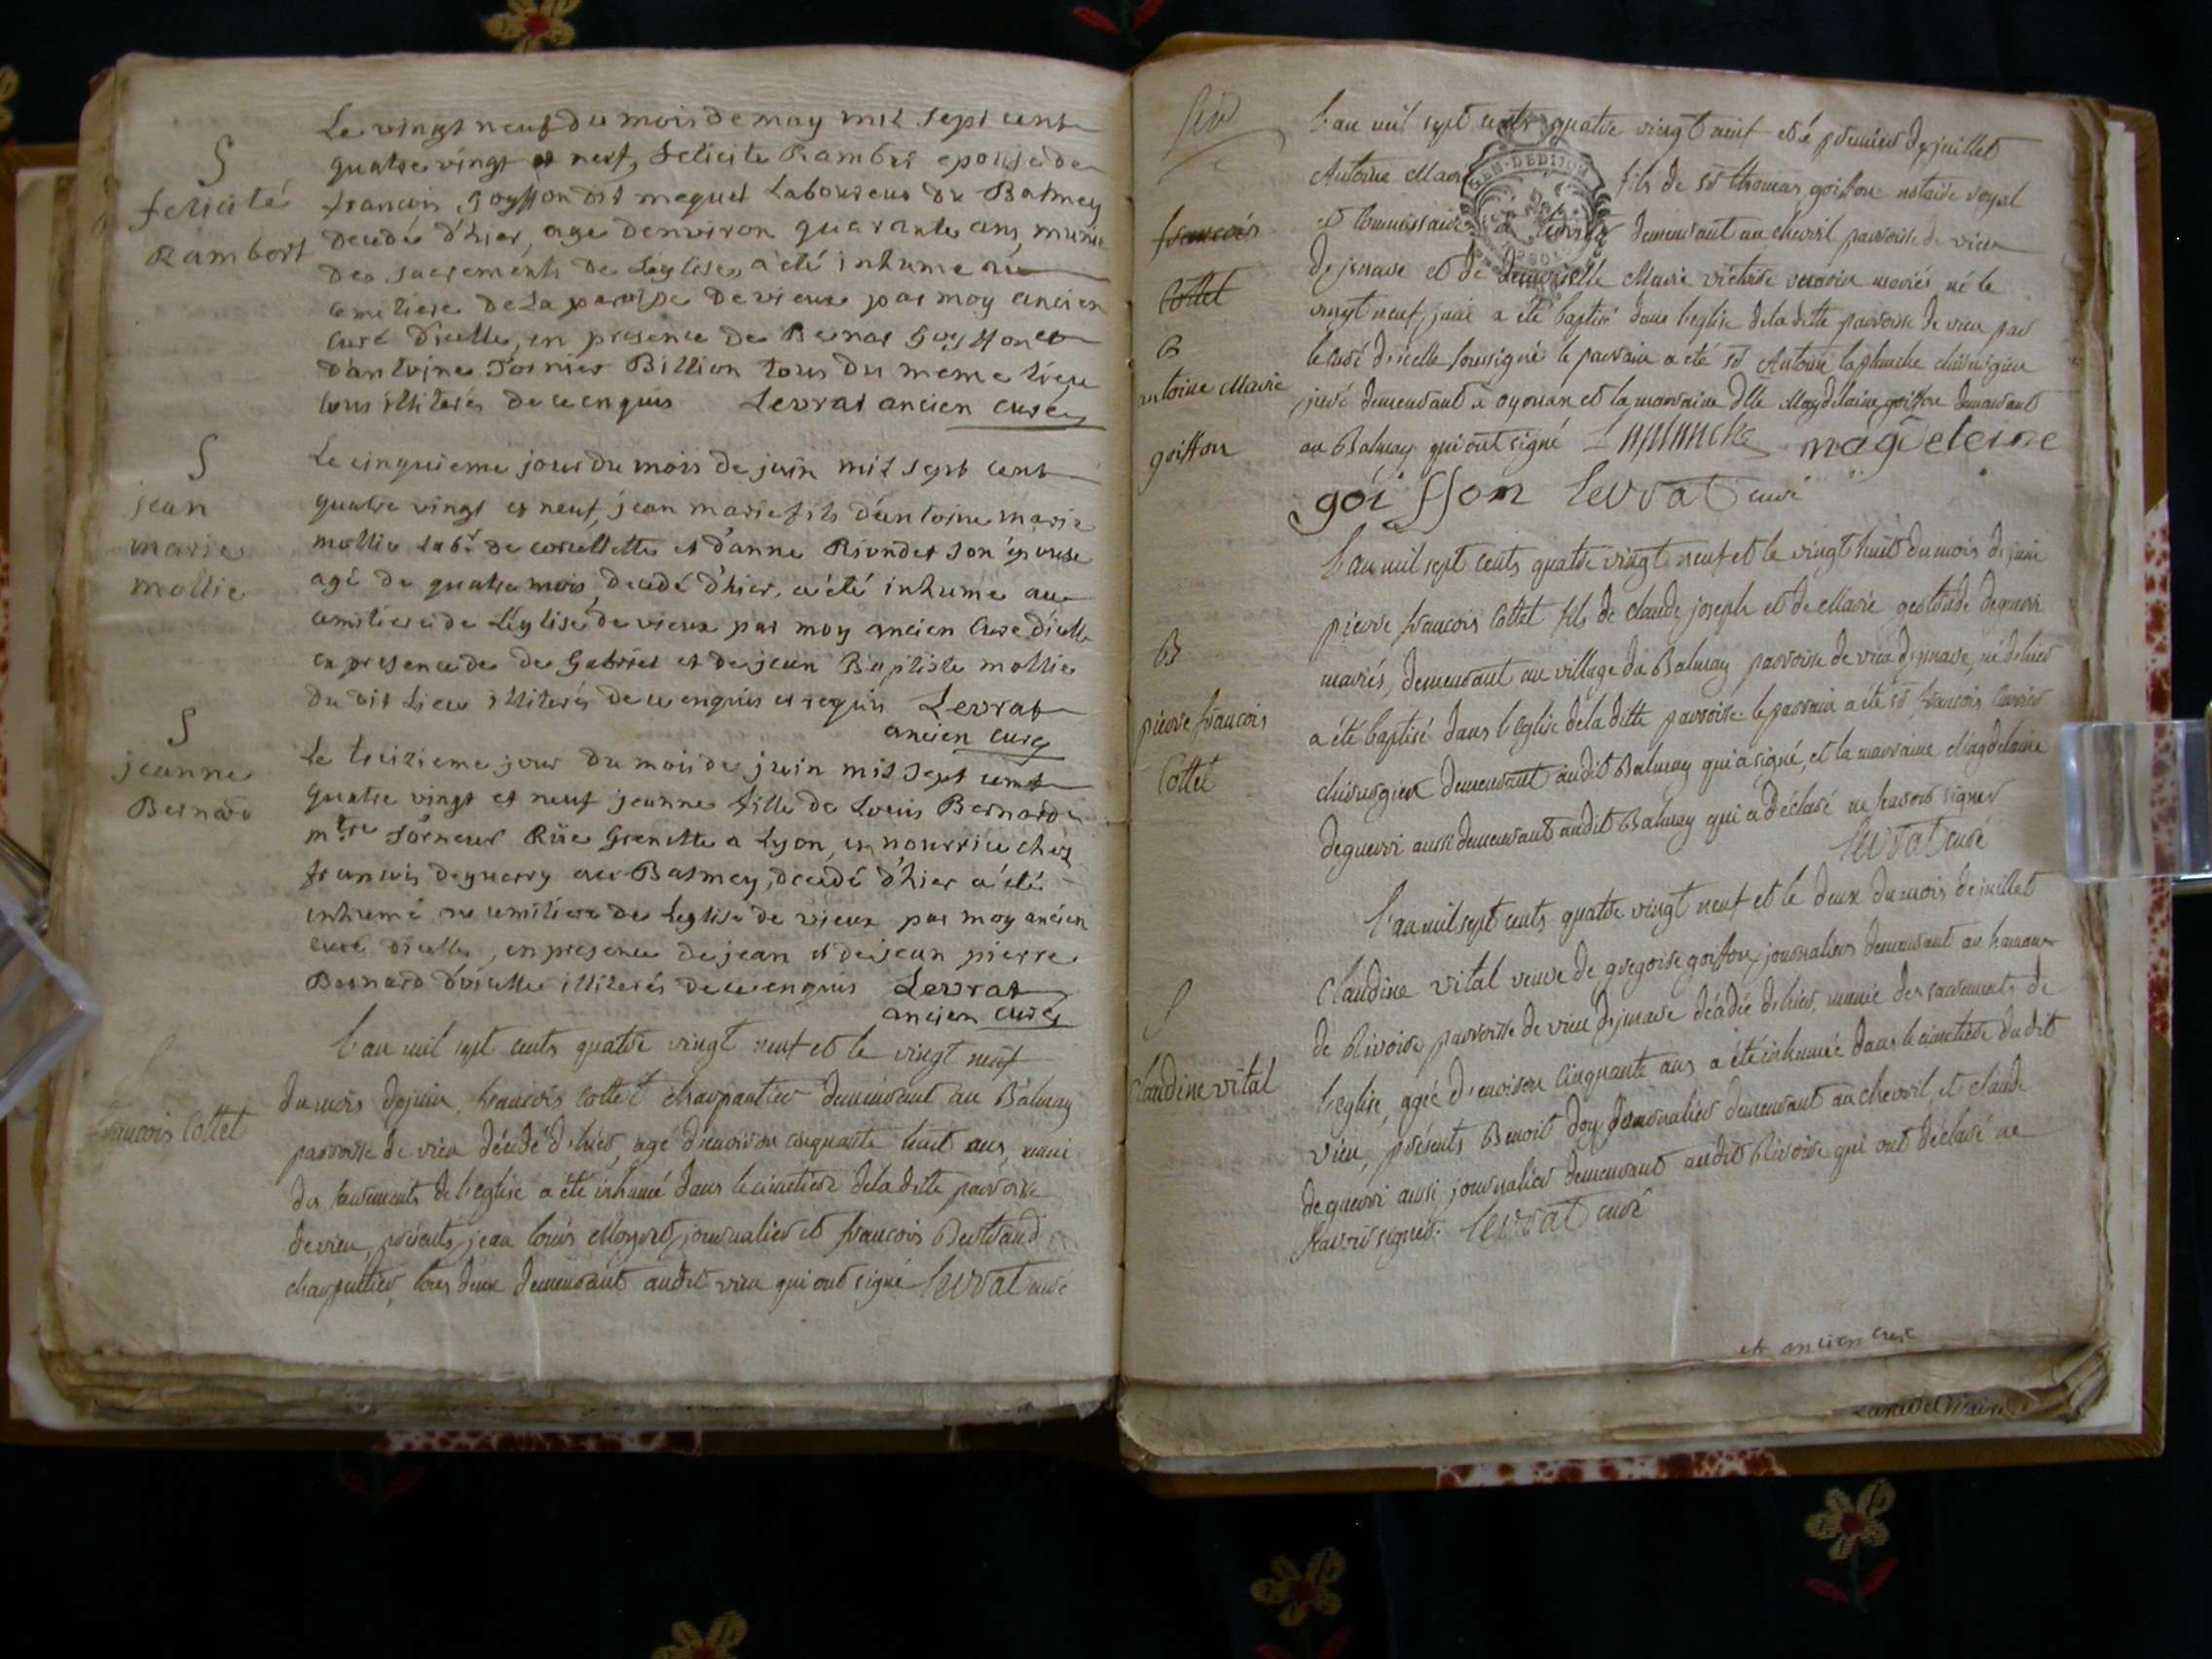 S
felicité
Rambort
Le vingt neuf du mois de may mil sept cent
quatre vingt et neuf, felicite Rambor epouse de
francois goyffon dit meguet Laboureur du Balmey
decedé d'hier, age denviron quarante ans, munie
des sacrements de Léglise, a été inhume au
cemitiere de La paroisse de vieux par moy ancien
curé d'icelle, en presence de Bernar goyffon et
d'antoine Tornier Billion tous du meme lieu
tous illiterés de ce enquis Levrat ancien curé
S
jean
marie
mollie
Le cinquieme jour du mois de juin mil sept cent
quatre vingt et neuf, jean marie fils d'antoine marie
mollie lab.r de corcellette et d'anne Riondet son epouse
agé de quatre mois, decedé d'hier, a été inhumé au
cemitiere de L'églisé de vieux par moy ancien Curé d'icelle
en presence de de Gabriel et de jean Baptiste mollie
du dit Lieu illiterés de ce enquis et requis Levrat
ancien curé
S
jeanne
Bernard
Le treizieme jour du mois de juin mil sept cent
quatre vingt et neuf jeanne fille de Louis Bernard
m.tre Torneur Rüe Grenette a Lyon, en nourrice chez
francois deguerry au Balmey, decedé d'hier a été
inhumé au cemitiere de Leglise de vieux par moy ancien
curé d'icelle, en presence de jean et de jean pierre
Bernard d'icelle illiterés de ce enquis Levrat
ancien curé
francois Cottet
L'an mil sept cents quatre vingt neuf et le vingt neuf
du mois de juin, francois Cottet charpantier demeurant au Balmay
parroisse de vieu décédé d'hier, agé d'environ cinquante huit ans, muni
des sacrements de l'eglise a été inhumé dans le cimetiere de la ditte parroisse
de vieu, présents jean louis journalier et francois Bertrand
charpentier, tous deux demeurant audit vieu qui ont signé Levrat curé
francois
Cottet
B
antoine Marie
goiffon
L'an mil sept cents quatre vingt neuf et le premier de juillet
Antoine Marie fils de sr thomas goiffon notaire royal
et Commissaire a demeurant au chevril parroisse de vieu
d'ejznave et de demoiselle Marie mariés, né le
vingt neuf juin a été baptisé dans l'eglise de la ditte parroisse de vieu par
le curé d'icelle soussigné le parrain a été sr Antoine laplanche chirurgien
juré demeurant a oyonan et la marraine dlle Magdelaine goiffon demeurant
au Balmay qui ont signé Laplanche magdeleine
goiffon Levrat curé
B
pierre francois
Cottet
L'an mil sept cents quatre vingt neuf et le vingt huit du mois de juin
pierre francois Cottet fils de claude joseph et de Marie gertrude deguerri
mariés, demeurant au village du Balmay parroisse de vieu d'ejznave, né d'hier
a été baptisé dans l'Eglise de la ditte parroise le parrain a été sr francois
chirurgien demeurant audit Balmay qui a signé, et la marraine Magdelaine
deguerri aussi demeurant audit Balmay qui a déclaré ne scavoir signer
Levrat curé
S
Claudine vital
L'an mil sept cents quatre vingt neuf et le deux du mois de juillet
Claudine vital veuve de gregoire goiffon journaliers demeurant au hameau
de Rivoire parroisse de vieu d'ejznave décédée d'hier, munie des sacrements de
l'eglise, agée d'environ Cinquante ans a été inhumée dans le cimetiere du dit
vieu, présents Benoit journalier demeurant au chevril, et claude
deguerri aussi journalier demeurant audit Rivoire qui ont déclaré ne
scavoir signer. Levrat curé
et ancien curé